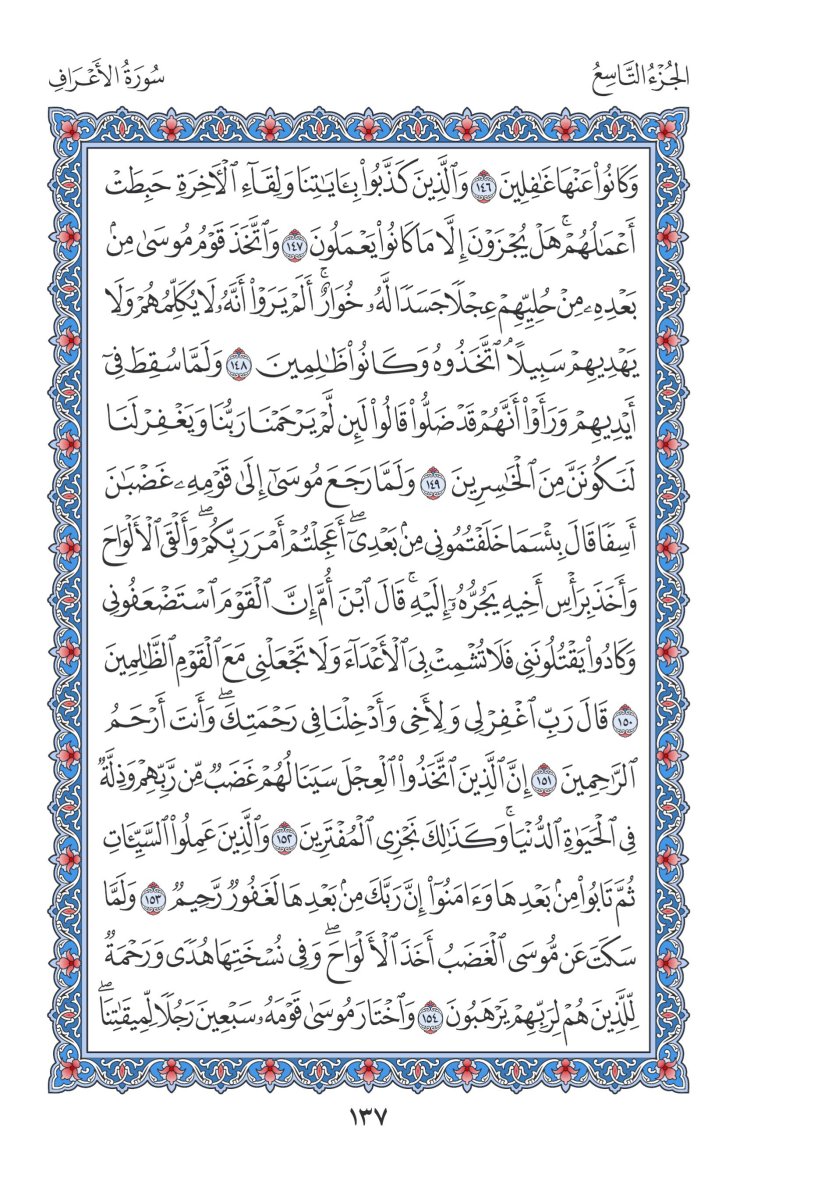 الجُزْءُ التَّاسِعُ
سُورَةُ الأَعْرَافِ
وَكَانُوا۟ عَنْهَا غَٰفِلِينَ ١٤٦ وَٱلَّذِينَ كَذَّبُوا۟ بِـَٔايَٰتِنَا وَلِقَآءِ ٱلْأٓخِرَةِ حَبِطَتْ
أَعْمَٰلُهُمْۚ هَلْ يُجْزَوْنَ إِلَّا مَا كَانُوا۟ يَعْمَلُونَ ١٤٧ وَٱتَّخَذَ قَوْمُ مُوسَىٰ مِنۢ
بَعْدِهِۦ مِنْ حُلِيِّهِمْ عِجْلًا جَسَدًا لَّهُۥ خُوَارٌۚ أَلَمْ يَرَوْا۟ أَنَّهُۥ لَا يُكَلِّمُهُمْ وَلَا
يَهْدِيهِمْ سَبِيلًاۘ ٱتَّخَذُوهُ وَكَانُوا۟ ظَٰلِمِينَ ١٤٨ وَلَمَّا سُقِطَ فِىٓ
أَيْدِيهِمْ وَرَأَوْا۟ أَنَّهُمْ قَدْ ضَلُّوا۟ قَالُوا۟ لَئِن لَّمْ يَرْحَمْنَا رَبُّنَا وَيَغْفِرْ لَنَا
لَنَكُونَنَّ مِنَ ٱلْخَٰسِرِينَ ١٤٩ وَلَمَّا رَجَعَ مُوسَىٰٓ إِلَىٰ قَوْمِهِۦ غَضْبَٰنَ
أَسِفًا قَالَ بِئْسَمَا خَلَفْتُمُونِى مِنۢ بَعْدِىٓۖ أَعَجِلْتُمْ أَمْرَ رَبِّكُمْۖ وَأَلْقَى ٱلْأَلْوَاحَ
وَأَخَذَ بِرَأْسِ أَخِيهِ يَجُرُّهُۥٓ إِلَيْهِۚ قَالَ ٱبْنَ أُمَّ إِنَّ ٱلْقَوْمَ ٱسْتَضْعَفُونِى
وَكَادُوا۟ يَقْتُلُونَنِى فَلَا تُشْمِتْ بِىَ ٱلْأَعْدَآءَ وَلَا تَجْعَلْنِى مَعَ ٱلْقَوْمِ ٱلظَّٰلِمِينَ
١٥٠ قَالَ رَبِّ ٱغْفِرْ لِى وَلِأَخِى وَأَدْخِلْنَا فِى رَحْمَتِكَۖ وَأَنتَ أَرْحَمُ
ٱلرَّٰحِمِينَ ١٥١ إِنَّ ٱلَّذِينَ ٱتَّخَذُوا۟ ٱلْعِجْلَ سَيَنَالُهُمْ غَضَبٌ مِّن رَّبِّهِمْ وَذِلَّةٌ
فِى ٱلْحَيَوٰةِ ٱلدُّنْيَاۚ وَكَذَٰلِكَ نَجْزِى ٱلْمُفْتَرِينَ ١٥٢ وَٱلَّذِينَ عَمِلُوا۟ ٱلسَّيِّـَٔاتِ
ثُمَّ تَابُوا۟ مِنۢ بَعْدِهَا وَءَامَنُوٓا۟ إِنَّ رَبَّكَ مِنۢ بَعْدِهَا لَغَفُورٌ رَّحِيمٌ ١٥٣ وَلَمَّا
سَكَتَ عَن مُّوسَى ٱلْغَضَبُ أَخَذَ ٱلْأَلْوَاحَۖ وَفِى نُسْخَتِهَا هُدًى وَرَحْمَةٌ
لِّلَّذِينَ هُمْ لِرَبِّهِمْ يَرْهَبُونَ ١٥٤ وَٱخْتَارَ مُوسَىٰ قَوْمَهُۥ سَبْعِينَ رَجُلًا لِّمِيقَٰتِنَاۖ
١٣٧